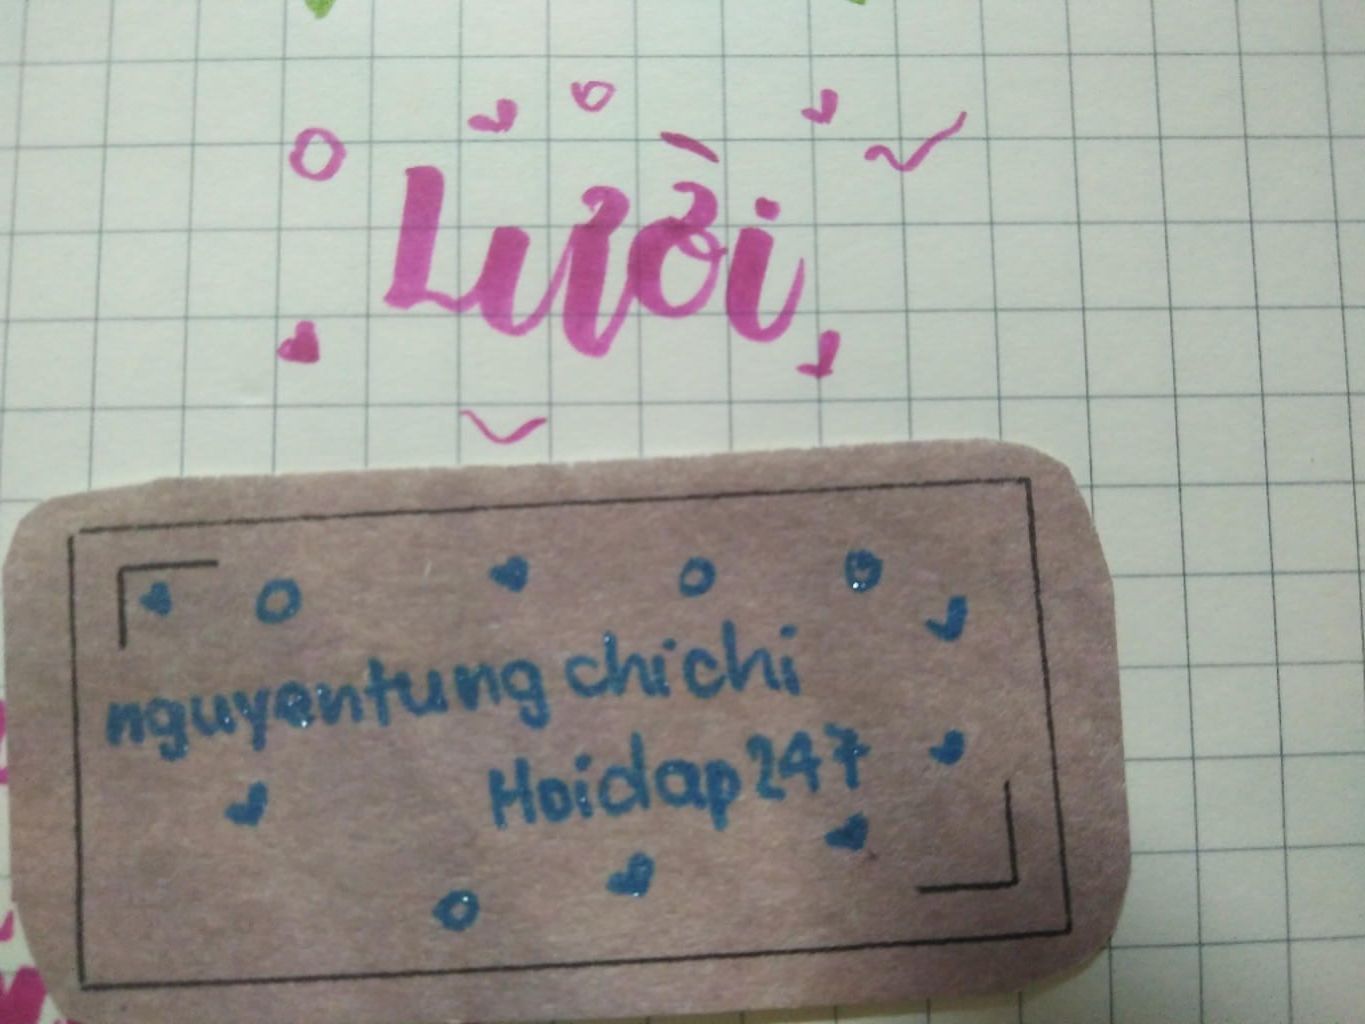 Lười
nguyentung chichi
Hoidap247